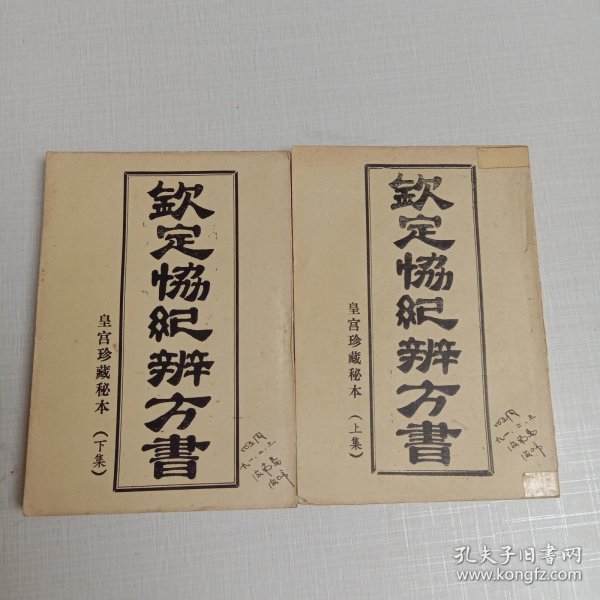 欽定協紀辨方書
皇宫珍藏秘本
（下集）
欽定協紀辨方書
皇宫珍藏秘本
（上集）
孔夫子旧书网
www.kongfz.com